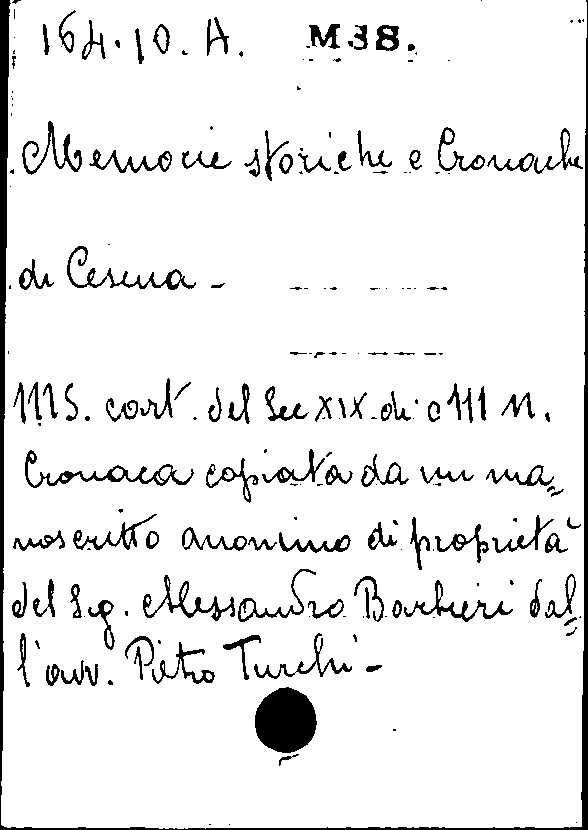 164.10.A. MSS.
Memorie storiche e Cronache
di Cesena -
MS. cart. del Sec XIX di c 111 n.
Cronaca copiata da un ma=
noscritto anonimo di proprietà
del Sig. Alessandro Barbieri dal=
l'avv. Pietro Turchi -